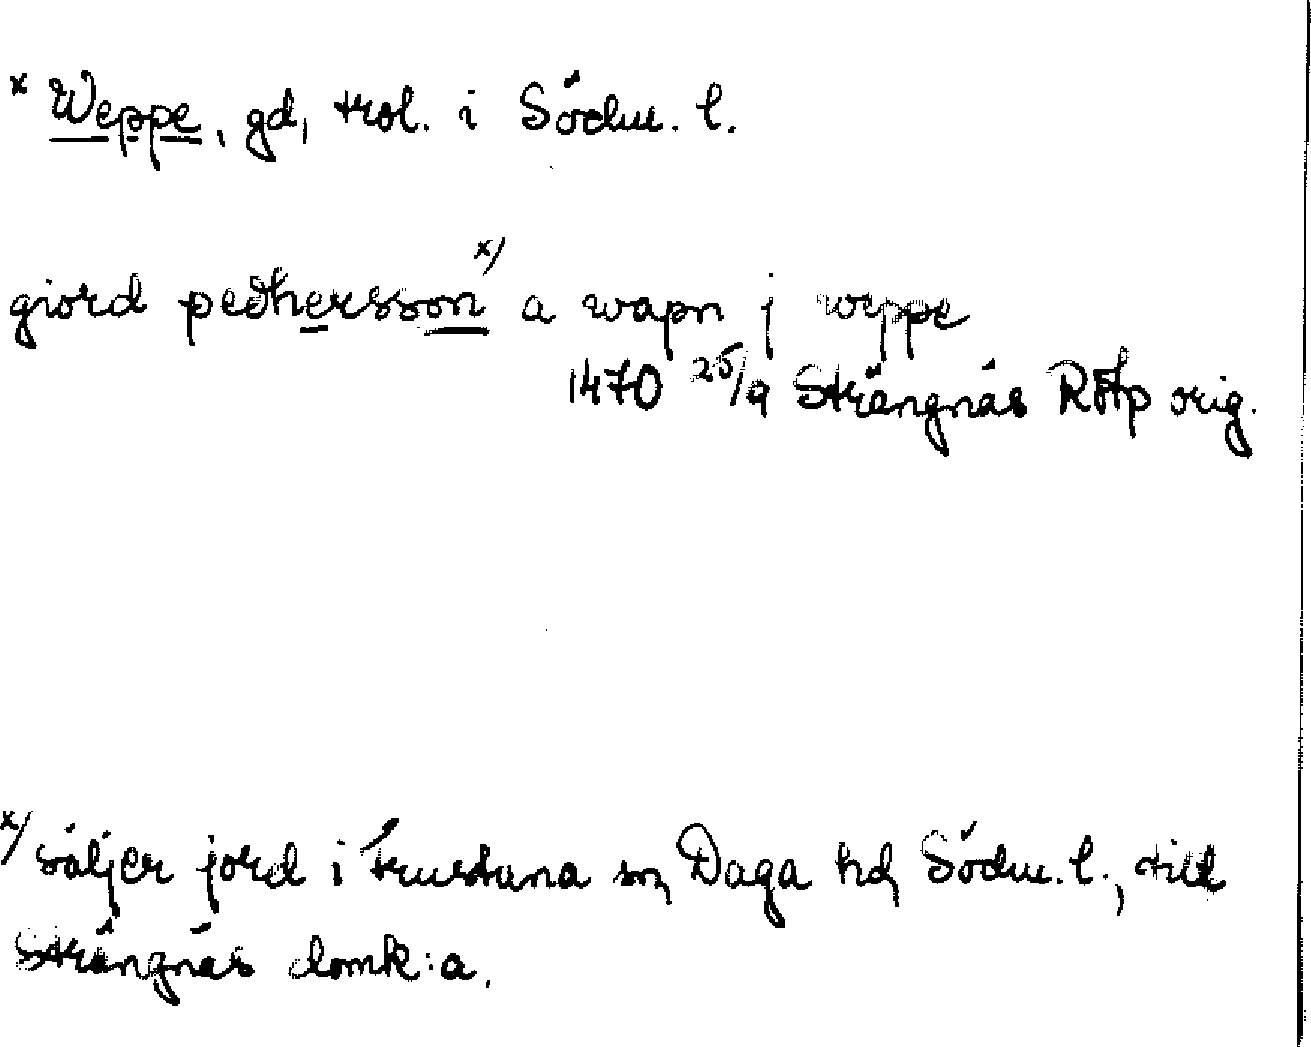 x Weppe, gd, trol. i Södm. l.
giord pedhersson x) a wapn j weppe
1470 25/9 Strängnäs RAp orig.
x) säljer jord i Frustuna sn, Daga hd, Södm. l., till
Strängnäs domk:a.